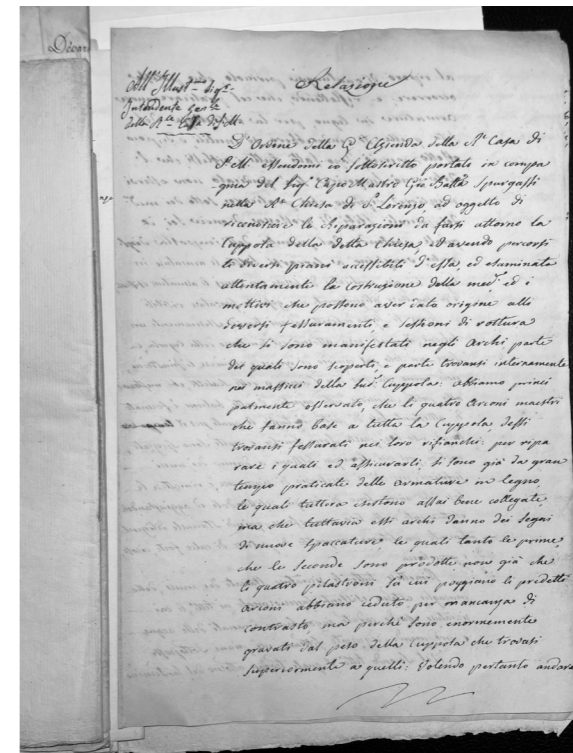 Décor
All' Illust.mo Sig.r
Intendente Gen.le
Della R.le Casa di S.M.
Relazione
D'Ordine della G.le Azienda della R.le Casa di
S.M. essendomi io sottoscritto portato in compa
gnia del Sig.r Capo Mastro Gio Batta Spurgassi
nella R.le Chiesa di S. Lorenzo ad oggetto di
riconoscere le riparazioni da farsi attorno la
Cuppola della detta Chiesa, ed avendo percorsi
li diversi piani accessibili d'essa, ed esaminata
attentamente la costruzione della med.a ed i
mottivi che possono aver dato origine alli
diversi fessuramenti, e sessioni di rottura
che si sono manifestati negli Archi parte
dei quali sono scoperti, e parte trovansi internamente
nei massicci della sud.a Cuppola: abbiamo princi
palmente osservato, che li quattro Arconi maestri
che fanno base a tutta la Cuppola dessi
trovansi fessurati nei loro rifianchi: per ripa
rare i quali ed assicurarli si sono già da gran
tempo praticate delle armature in legno,
le quali tuttora esistono assai bene collegate,
ma che tuttavia essi archi danno dei segni
di nuove spaccature, le quali tanto le prime,
che le seconde sono prodotte non già che
li quatro pilastroni su cui poggiano li predetti
arconi abbiano ceduto per mancanza di
contrasto, ma perchè sono enormemente
gravati dal peso della Cuppola che trovasi
superiormente a quelli: Volendo pertanto andare